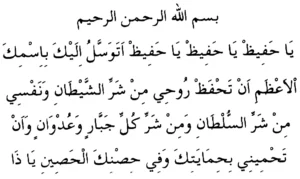 بسم الله الرحمن الرحيم
يَا حَفِيظُ يَا حَفِيظُ يَا حَفِيظُ اَتَوَسَّلُ اِلَيْكَ بِاِسْمِكَ
اْلاَعْظَمِ اَنْ تَحْفَظْ رُوحِي مِنْ شَرِّ الشَّيْطَانِ وَنَفْسِي
مِنْ شَرِّ السُّلْطَانِ وَمِنْ شَرِّ كُلِّ جَبَّارٍ وَعُدْوَانٍ وَاَنْ
تَحْمِيَنِي بِحِمَايَتِكَ وَفِي حِصْنِكَ الْحَصِينِ يَا ذَا